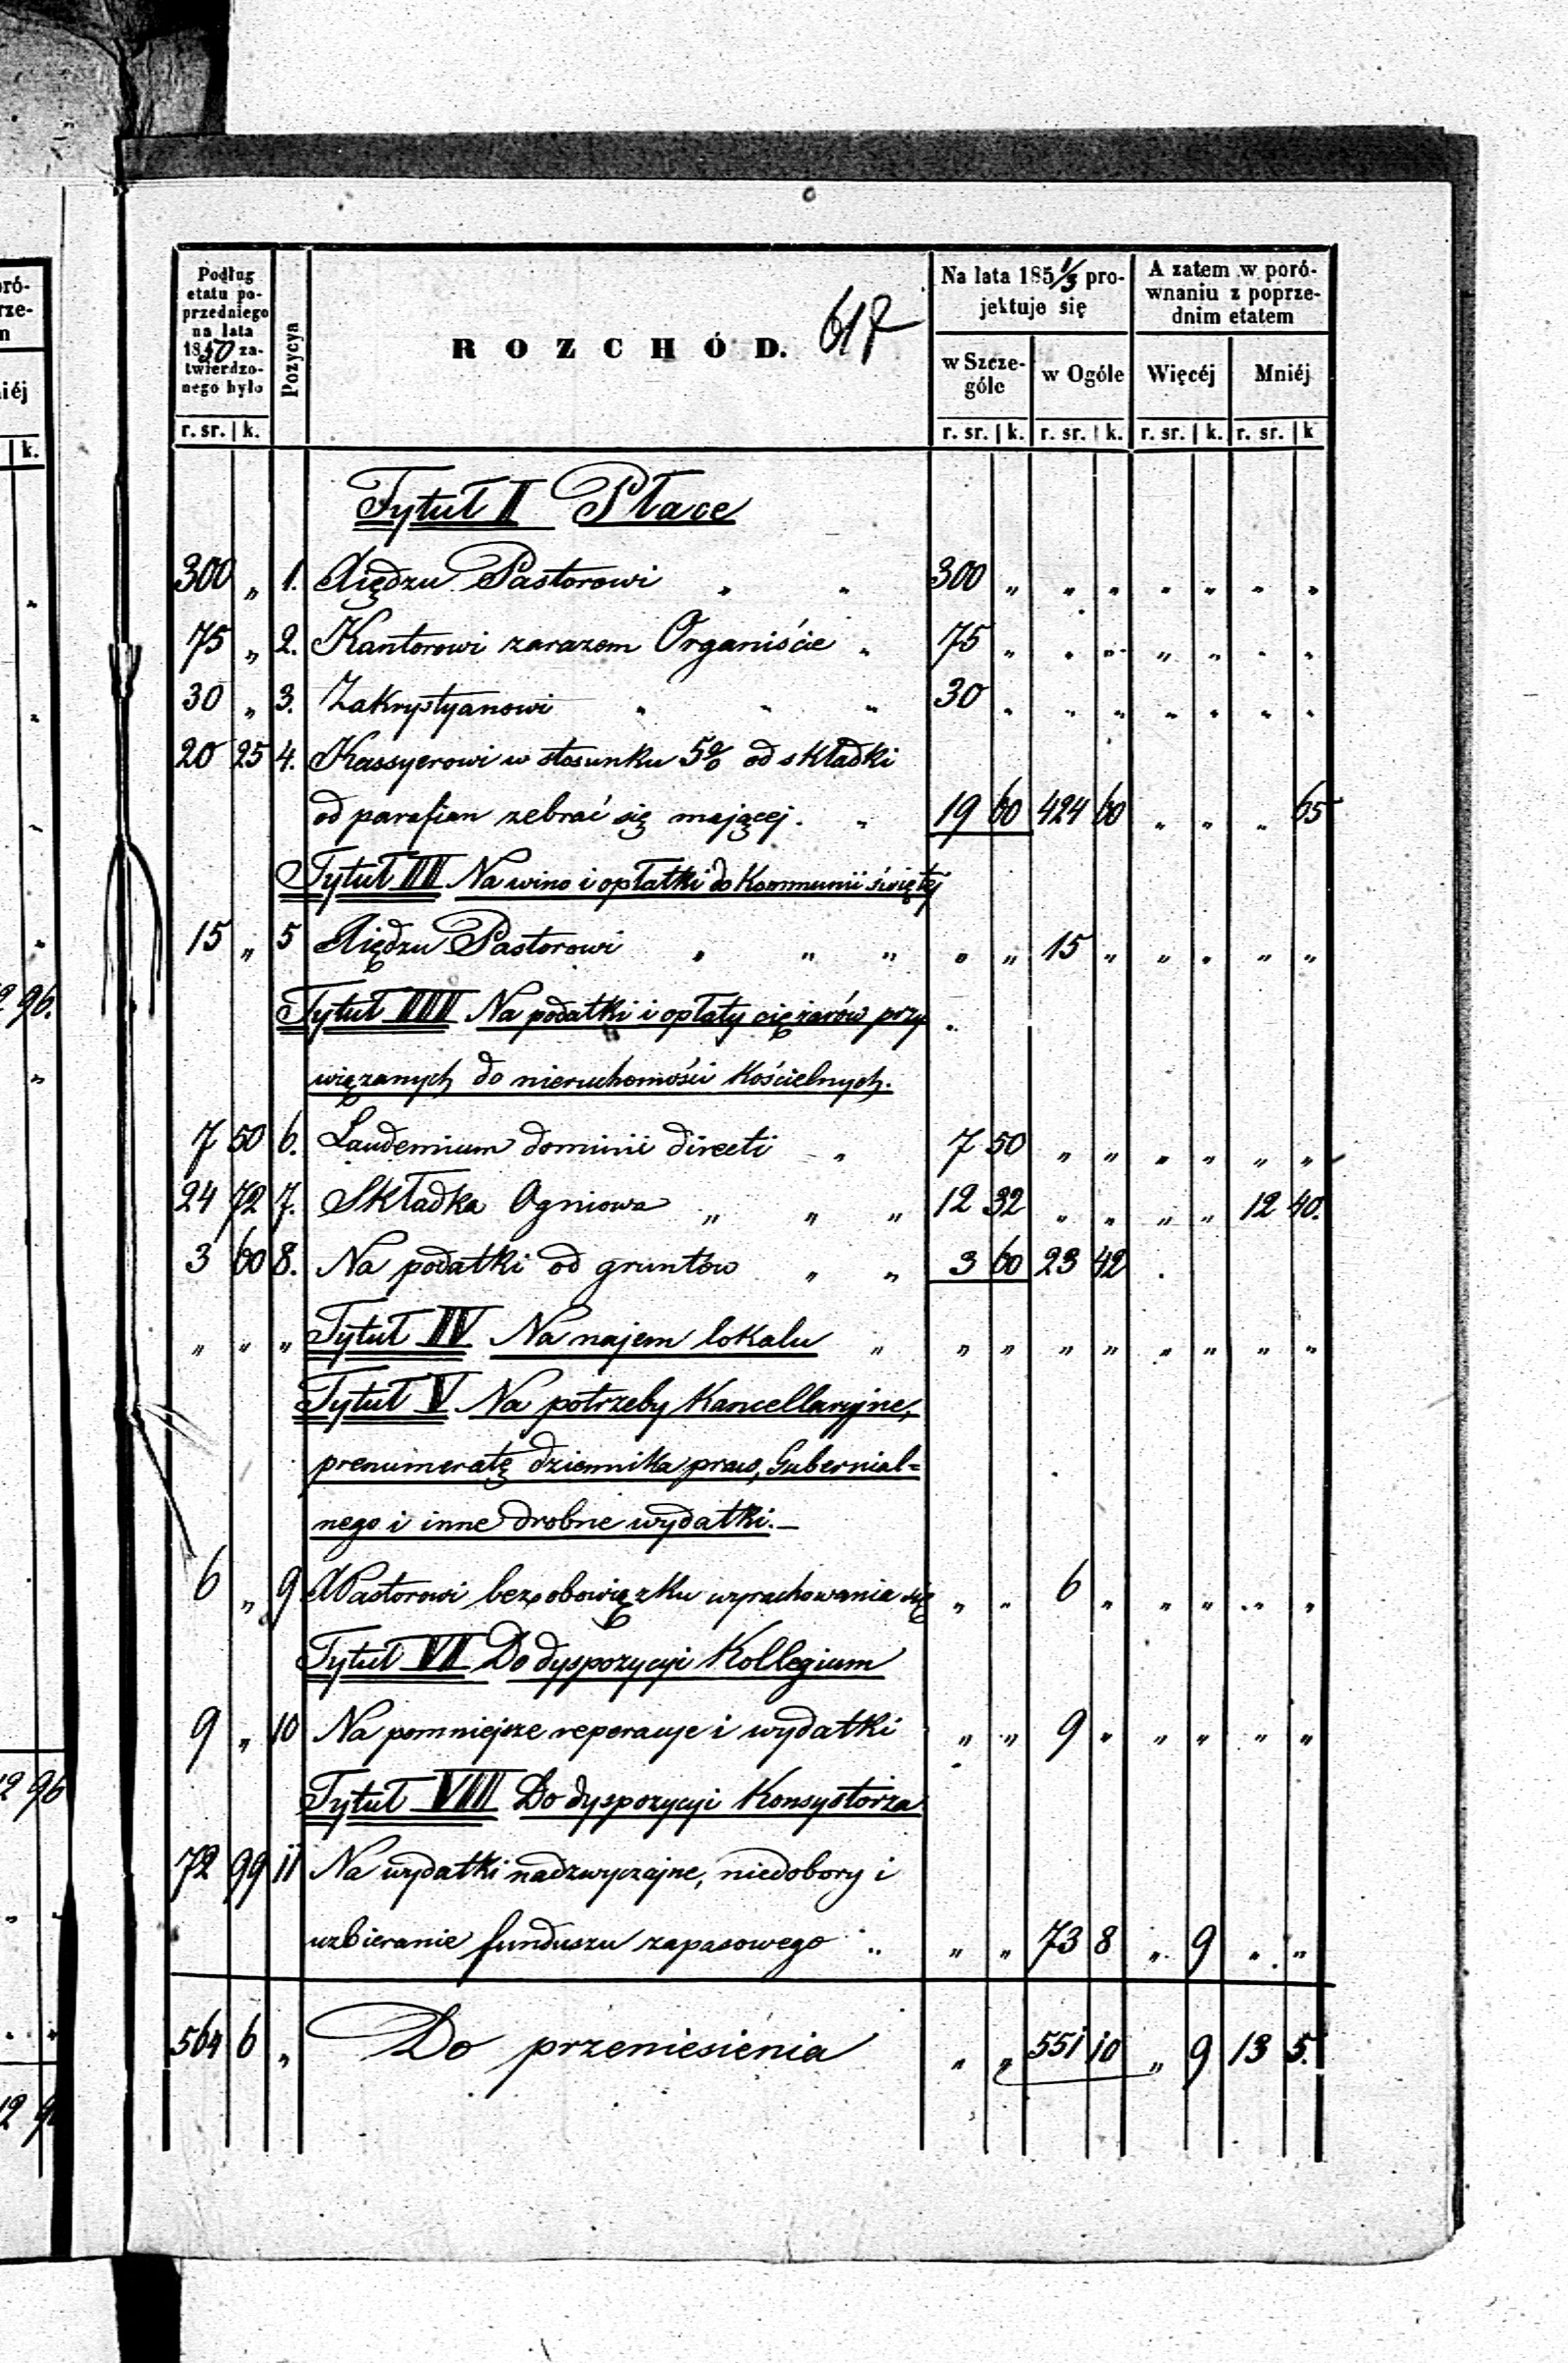 oró-
rze-
m
iéj
k.
2 96.
12 96
12 9
Podług etatu po-przedniego na lata 1850 za-twierdzo-nego było
Pozycya
ROZCHÓD.
617
Na lata 185 1/3 pro-jektuje się
A zatem w poró-wnaniu z poprze-dnim etatem
w Szcze-góle
w Ogóle
Więcéj
Mniéj
r. sr. | k. r. sr. | k. r. sr. | k. r. sr. | k. r. sr. | k
Tytuł I Płace
300 " 1. Xiędzu Pastorowi " " 300 " " " " " " "
75 " 2. Kantorowi zarazem Organiście " 75 " " " " " " "
30 " 3. Zakrystyanowi " " " 30 " " " " " " "
20 25 4. Kassyerowi w stosunku 5% od składki
od parafian zebrać się mającej. " 19 60 424 60 " " " 65
Tytuł II Na wino i opłatki do Kommunii świętej
15 " 5 Xiędzu Pastorowi " " " " " 15 " " " " "
Tytuł III Na podatki i opłaty ciężarów przy
wiązanych do nieruchomości Kościelnych.
7 50 6. Laudemium dominii directi " 7 50 " " " " " "
24 72 7. Składka Ogniowa " " " 12 32 " " " " 12 40.
3 60 8. Na podatki od gruntów " " 3 60 23 42
" " " Tytuł IV Na najem lokalu " " " " " " " " "
Tytuł V Na potrzeby Kancellaryjne,
prenumeratę dziennika praw, Gubernial=
nego i inne drobne wydatki.—
6 " 9 XPastorowi bez obowiązku wyrachowania się " " 6 " " " " "
Tytuł VI Do dyspozycyi Kollegium
9 " 10 Na pomniejsze reperacye i wydatki " " 9 " " " " "
Tytuł VII Do dyspozycyi Konsystorza
72 99 11 Na wydatki nadzwyczajne, niedobory i
uzbieranie funduszu zapasowego " " " 73 8 " 9 " "
564 6 " Do przeniesienia " " 551 10 " 9 13 5.